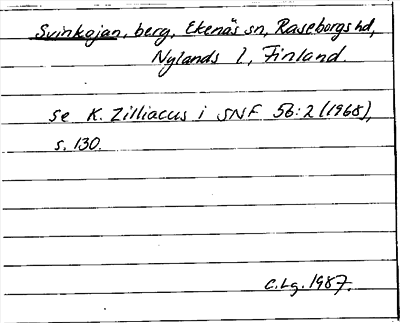 Svinkojan, berg, Ekenäs sn, Raseborgs hd,
Nylands l., Finland.
se K. Zilliacus i SNF 56:2 (1968),
s. 130.
C.Lg. 1987.